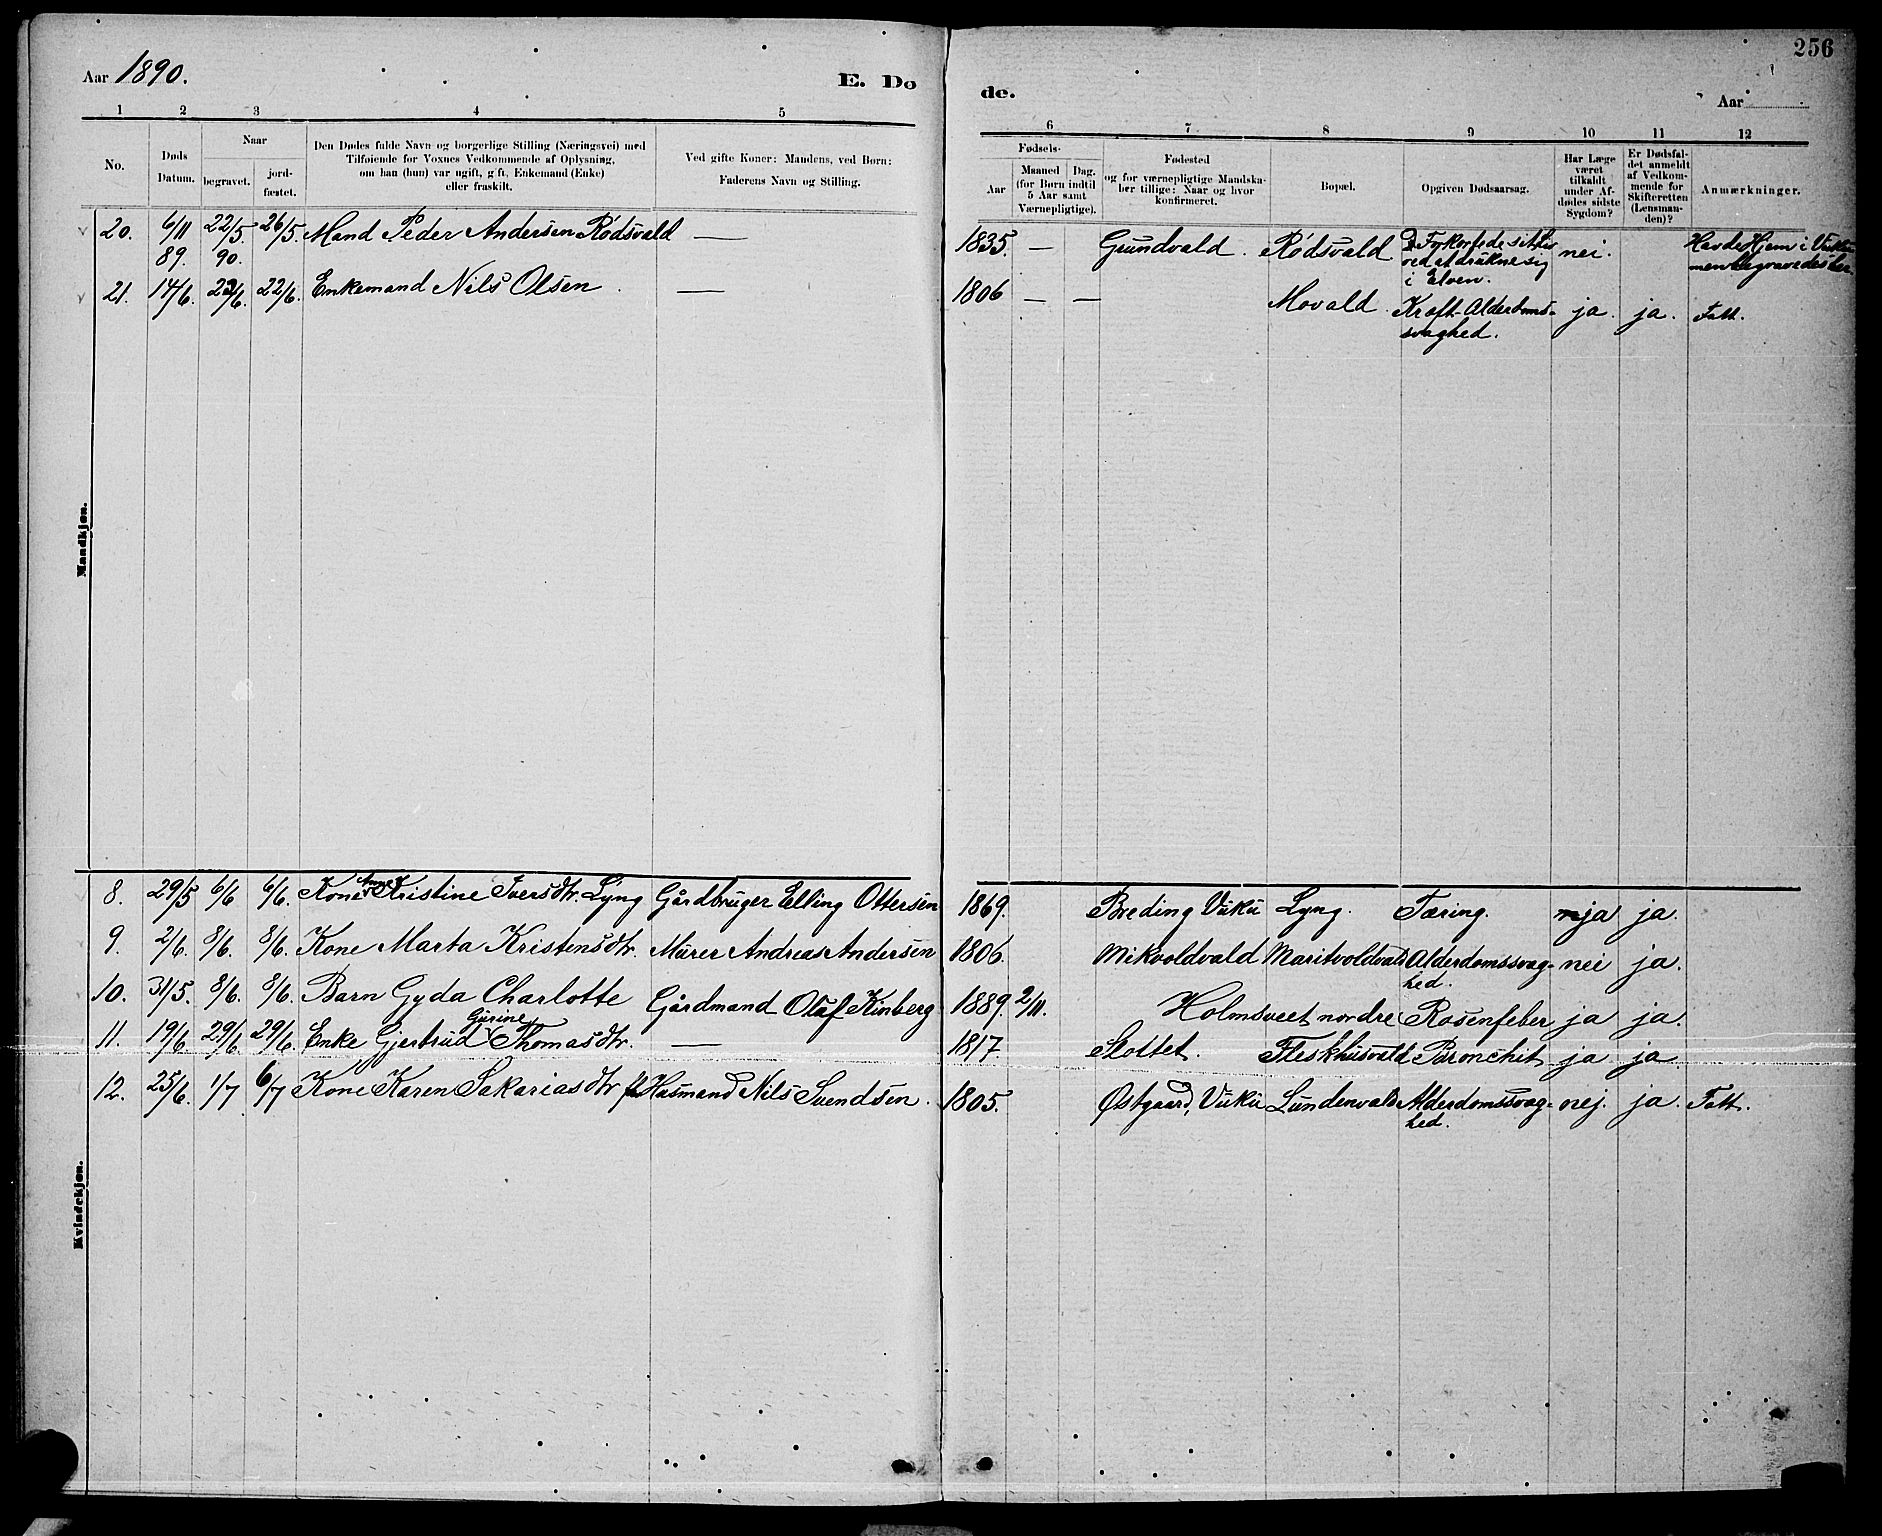 256
Aar 1890.
E. Do
de.
Aar
1 2 3 4 5
6 7 8 9 10 11 12
No.
Døds Datum.
Naar
begravet.
jord-
fæstet.
Den Dødes fulde Navn og borgerlige Stilling (Næringsvei) med
Tilføiende for Voxnes Vedkommende af Oplysning,
om han (hun) var ugift, gift, Enkemand (Enke)
eller fraskilt.
Ved gifte Koner: Mandens, ved Børn:
Faderens Navn og Stilling.
Fødsels-
Aar
Maaned Dag.
(for Børn indtil
5 Aar samt
Værnepligtige).
Fødested
og for værnepligtige Mandska-
ber tillige: Naar og hvor
konfirmeret.
Bopæl.
Opgiven Dødsaarsag.
Har Læge
været
tilkaldt
under Af-
dødes sidste
Sygdom?
Er Dødsfal-
det anmeldt
af Vedkom-
mende for
Skifteretten
(Lensman-
den)?
Anmærkninger.
Mandkjøn.
20. 6/11 89. 22/5. 90. 26/5. Mand Peder Andersen Rødsvald — 1835. — Grundvald. Rødsvald sit Liv
ved at drukne sig
i Elven. nei. Havde Hjem i
men begravedes her.
21. 14/6. 22/6. Enkemand Nils Olsen. — 1806 — — Movald. Kraft- Alderdoms-
svaghed. ja. ja. Fatt.
Kvindekjøn.
8. 29/5 6/6 6/6. Kone Anne Kristine Iversdtr. Lyng Gårdbruger Elling Ottersen 1869. Breding Vuku Lyng. Tæring. ja ja.
9. 2/6. 8/6. 8/6. Kone Marta Kristensdtr. Murer Andreas Andersen 1806. Mikvoldvald Maritvoldvald Alderdomssvag-
hed. nei ja.
10. 31/5. 8/6. 8/6. Barn Gyda Charlotte Gårdmand Olaf Kinberg 1889. 2/11. Holmsveet nordre Rosenfeber ja ja.
11. 19/6 29/6. 29/6. Enke Gjertrud Gurine Thomasdtr. — 1817 Slottet. Fleskhusvald Bronchit ja ja
12. 25/6. 1/7 6/7 Kone Karen Sakariasdtr Husmand Nils Svendsen. 1805. Østgaard, Vuku Lundenvald Alderdomssvag-
hed. nej. ja. Fatt.